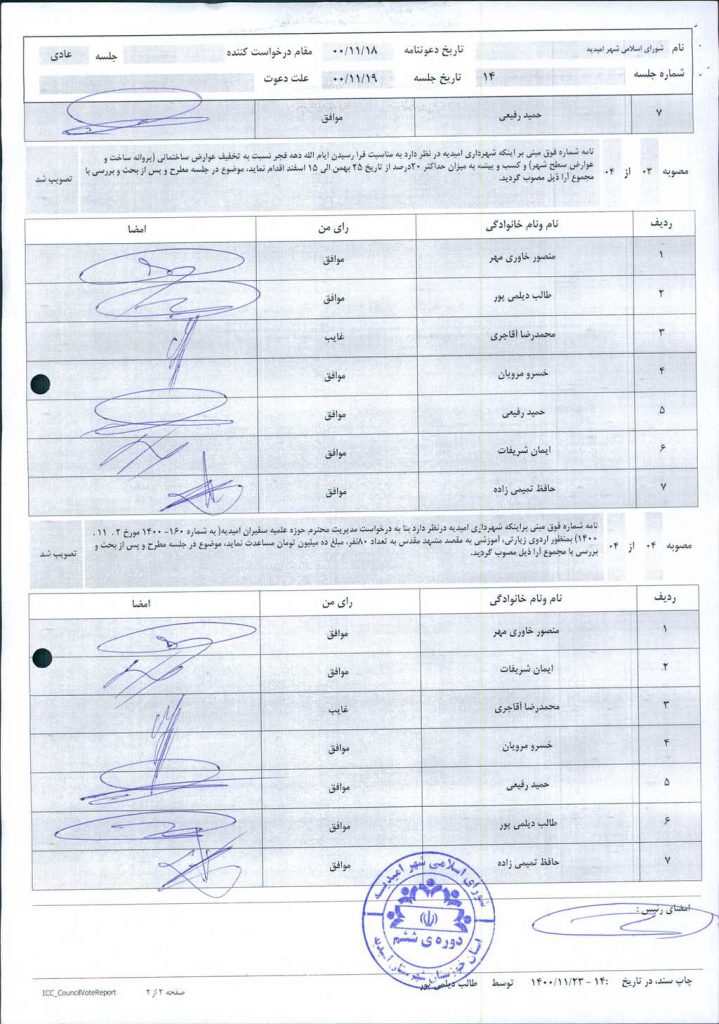 نام شورای اسلامی شهر امیدیه تاریخ دعوتنامه ۰۰/۱۱/۱۸ مقام درخواست کننده جلسه عادی
شماره جلسه ۱۴ تاریخ جلسه ۰۰/۱۱/۱۹ علت دعوت
۷ حمید رفیعی موافق
نامه شماره فوق مبنی بر اینکه شهرداری امیدیه در نظر دارد به مناسبت فرا رسیدن ایام الله دهه فجر نسبت به تخفیف عوارض ساختمانی (پروانه ساخت و
عوارض سطح شهر) و کسب و پیشه به میزان حداکثر ۲۰درصد از تاریخ ۲۵ بهمن الی ۱۵ اسفند اقدام نماید، موضوع در جلسه مطرح و پس از بحث و بررسی با
مجموع آرا ذیل مصوب گردید.
مصوبه ۰۳ از ۰۴ تصویب شد
ردیف نام ونام خانوادگی رای من امضا
۱ منصور خاوری مهر موافق
۲ طالب دیلمی پور موافق
۳ محمدرضا آقاجری غایب
۴ خسرو مرویان موافق
۵ حمید رفیعی موافق
۶ ایمان شریفات موافق
۷ حافظ تمیمی زاده موافق
نامه شماره فوق مبنی براینکه شهرداری امیدیه درنظر دارد بنا به درخواست مدیریت محترم حوزه علمیه سفیران امیدیه( به شماره ۱۶۰- ۱۴۰۰ مورخ ۰۲ ۱۱ .
۱۴۰۰) بمنظور اردوی زیارتی، آموزشی به مقصد مشهد مقدس به تعداد ۸۰نفر، مبلغ ده میلیون تومان مساعدت نماید، موضوع در جلسه مطرح و پس از بحث و
بررسی با مجموع آرا ذیل مصوب گردید.
مصوبه ۰۴ از ۰۴ تصویب شد
ردیف نام ونام خانوادگی رای من امضا
۱ منصور خاوری مهر موافق
۲ ایمان شریفات موافق
۳ محمدرضا آقاجری غایب
۴ خسرو مرویان موافق
۵ حمید رفیعی موافق
۶ طالب دیلمی پور موافق
۷ حافظ تمیمی زاده موافق
شورای اسلامی شهر امیدیه
دوره ی ششم
استان خوزستان شهرستان امیدیه
امضای رئیس :
چاپ سند، در تاریخ ۱۴: - ۱۴۰۰/۱۱/۲۳ توسط طالب دیلمی پور
صفحه ۲ از ۲ ICC_CouncilVoteReport